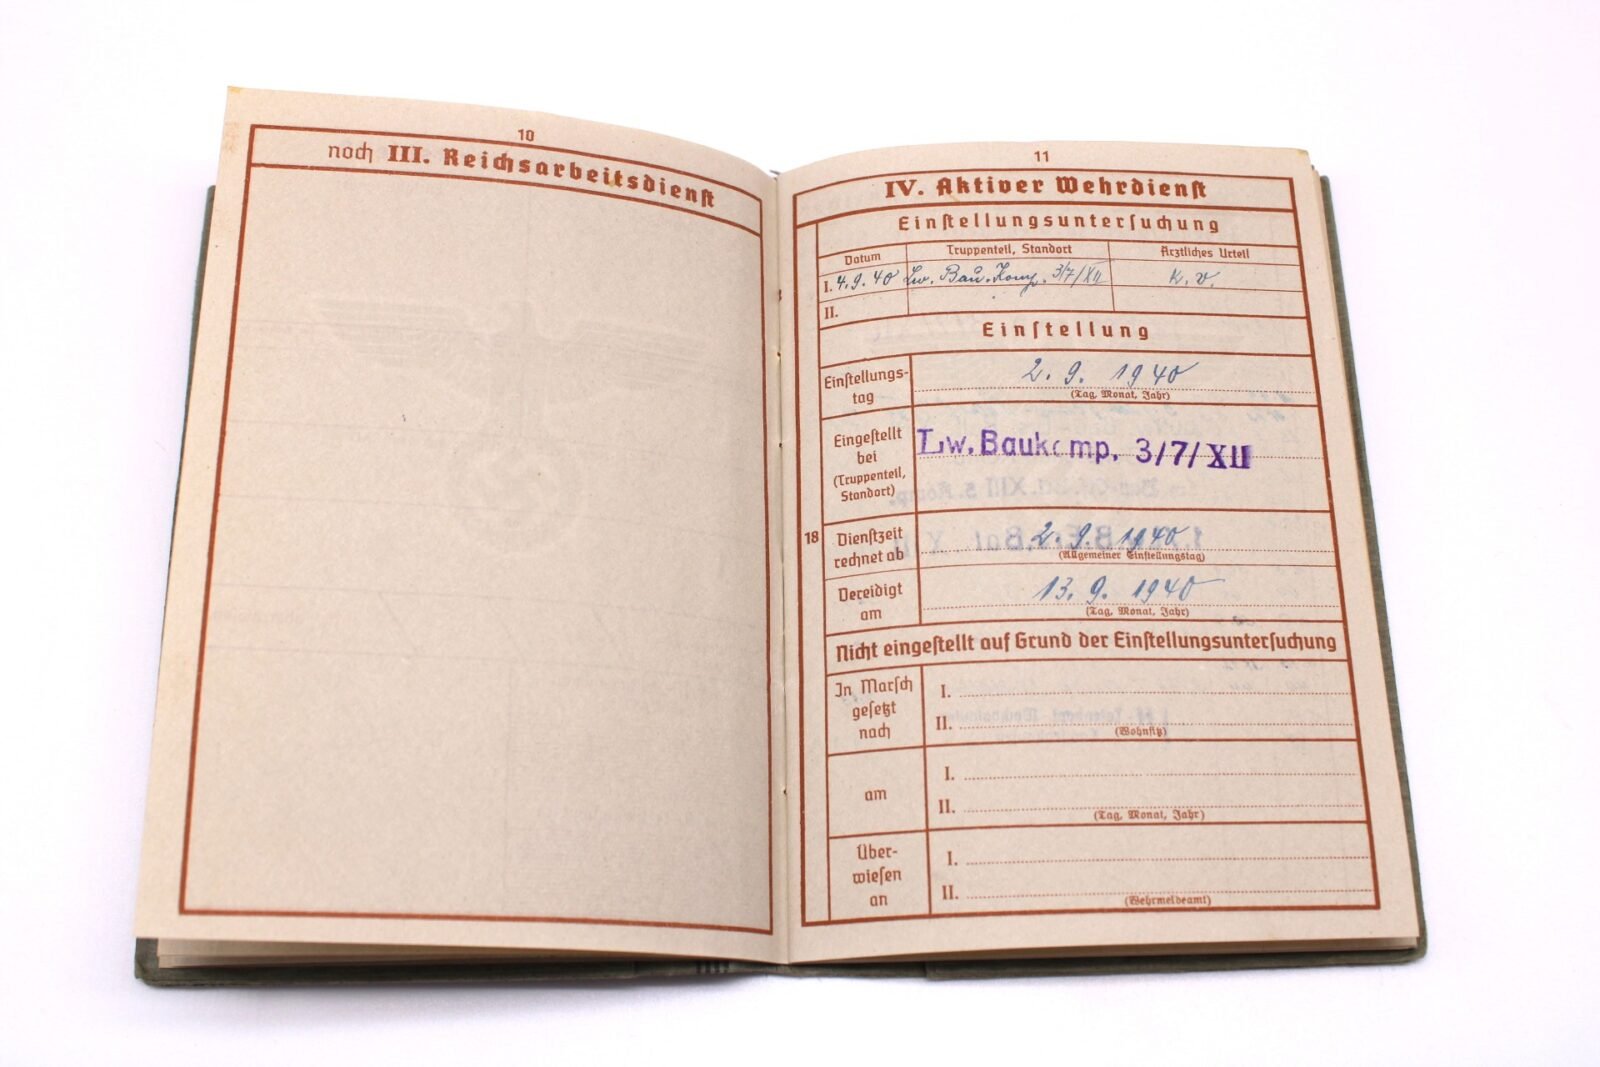 10
noch III. Reichsarbeitsdienst
11
IV. Aktiver Wehrdienst
Einstellungsuntersuchung
Datum Truppenteil, Standort Ärztliches Urteil
I. 4.9.40 Lw. Bau. Komp. 3/7/XII k.v.
II.
Einstellung
Einstellungs-
tag
2.9.1940
(Tag, Monat, Jahr)
Eingestellt
bei
(Truppenteil,
Standort)
Lw. Baukomp. 3/7/XII
18
Dienstzeit
rechnet ab
2.9.1940
(Allgemeiner Einstellungstag)
Vereidigt
am
13.9.1940
(Tag, Monat, Jahr)
Nicht eingestellt auf Grund der Einstellungsuntersuchung
In Marsch
gesetzt
nach
I.
II.
(Wohnsitz)
am
I.
II.
(Tag, Monat, Jahr)
Über-
wiesen
an
I.
II.
(Wehrmeldeamt)